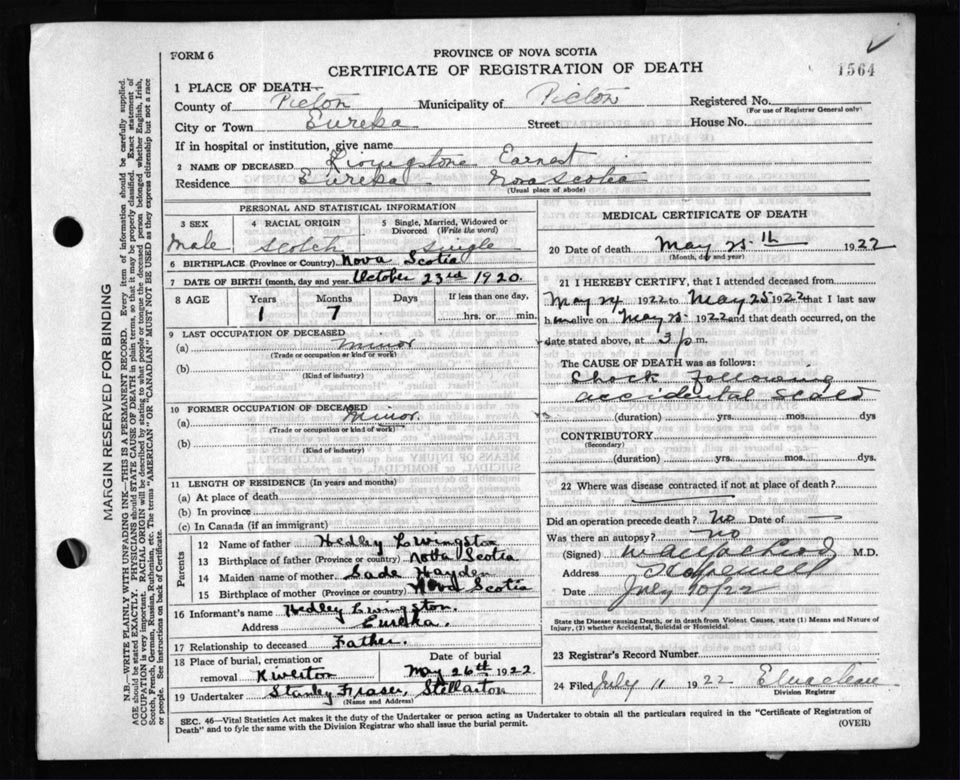 FORM 6
PROVINCE OF NOVA SCOTIA
CERTIFICATE OF REGISTRATION OF DEATH
1564
1 PLACE OF DEATH—
County of Pictou Municipality of Pictou Registered No.
(For use of Registrar General only)
City or Town Eureka Street House No.
If in hospital or institution, give name
2 NAME OF DECEASED Livingstone Earnest
Residence Eureka Nova Scotia
(Usual place of abode)
PERSONAL AND STATISTICAL INFORMATION
3 SEX 4 RACIAL ORIGIN 5 Single, Married, Widowed or Divorced (Write the word)
Male Scotch Single
6 BIRTHPLACE (Province or Country) Nova Scotia
7 DATE OF BIRTH (month, day and year) October 23rd 1920.
8 AGE Years Months Days If less than one day,
1 7 hrs. or min.
9 LAST OCCUPATION OF DECEASED
(a) Minor
(Trade or occupation or kind of work)
(b)
(Kind of industry)
10 FORMER OCCUPATION OF DECEASED
(a) Minor.
(Trade or occupation or kind of work)
(b)
(Kind of industry)
11 LENGTH OF RESIDENCE (In years and months)
(a) At place of death
(b) In province
(c) In Canada (if an immigrant)
Parents
12 Name of father Hedley Lowingston
13 Birthplace of father (Province or country) Nova Scotia
14 Maiden name of mother Sade Hayden
15 Birthplace of mother (Province or country) Nova Scotia
16 Informant's name Hedley Livingston.
Address Eureka.
17 Relationship to deceased Father.
18 Place of burial, cremation or removal Date of burial
May 26th 1922
19 Undertaker Stanley Fraser, Stellarton
(Name and Address)
MEDICAL CERTIFICATE OF DEATH
20 Date of death May 25th 1922
(Month, day and year)
21 I HEREBY CERTIFY, that I attended deceased from
May 24 1922 to May 25 1922 that I last saw
him alive on May 25 1922 and that death occurred, on the
date stated above, at 3 p m.
The CAUSE OF DEATH was as follows:
Shock following
accidental scald
(duration) yrs. mos. dys
CONTRIBUTORY
(Secondary)
(duration) yrs. mos. dys.
22 Where was disease contracted if not at place of death?
Did an operation precede death? No Date of —
Was there an autopsy? No
(Signed) M.D.
Address Hopewell
Date July 10/22
State the Disease causing Death, or in death from Violent Causes, state (1) Means and Nature of Injury, (2) whether Accidental, Suicidal or Homicidal.
23 Registrar's Record Number
24 Filed July 11 1922
Division Registrar
SEC. 46—Vital Statistics Act makes it the duty of the Undertaker or person acting as Undertaker to obtain all the particulars required in the "Certificate of Registration of
Death" and to fyle the same with the Division Registrar who shall issue the burial permit. (OVER)
MARGIN RESERVED FOR BINDING
N.B.—WRITE PLAINLY WITH UNFADING INK—THIS IS A PERMANENT RECORD. Every item of information should be carefully supplied.
AGE should be stated EXACTLY. PHYSICIANS should STATE CAUSE OF DEATH in plain terms, so that it may be properly classified. Exact statement of
OCCUPATION is very important. RACIAL ORIGIN will be described by stating to what people or tongue the deceased person belonged whether English, Irish,
Scotch, French, German, Russian, Ruthenian, etc. The terms "AMERICAN" OR "CANADIAN" MUST NOT BE USED as they express citizenship but not a race
or people. See instructions on back of Certificate.